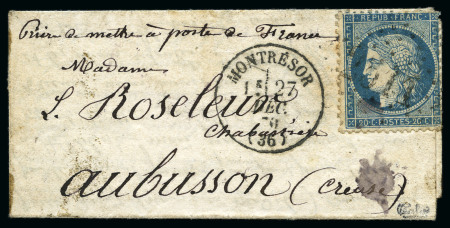 Prière de mettre à poste de France
Madame
L. Roseleur
Chabassière
aubusson (Creuse)
MONTRÉSOR
27
DÉC.
(36)
REPUB. FRANC.
20 C. POSTES 20 C.